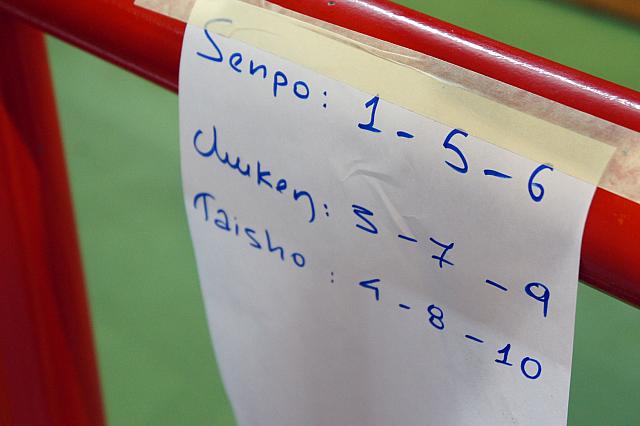 Senpo: 1 - 5 - 6
Chuken: 3 - 7 - 9
Taisho: 4 - 8 - 10